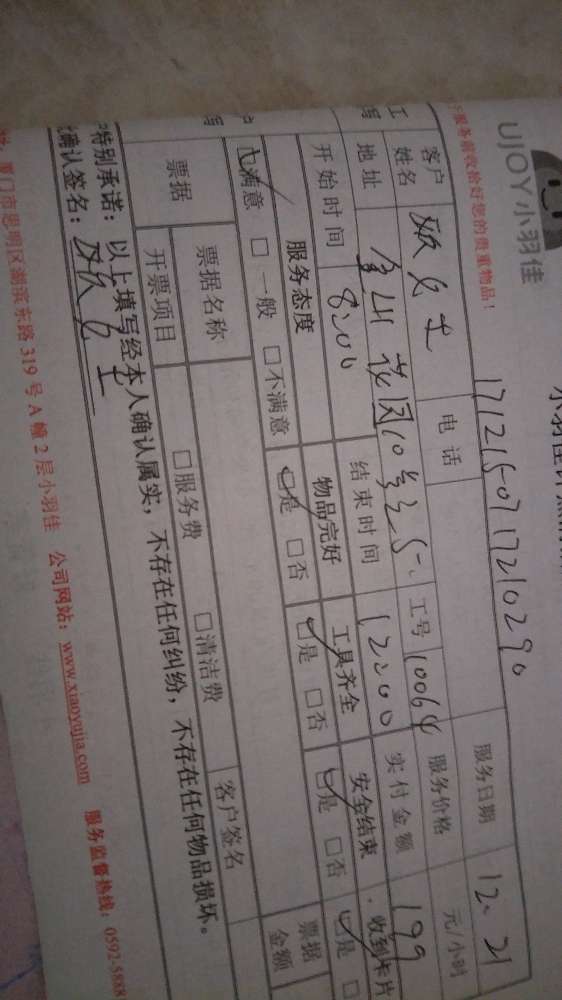 UJOY小羽佳
服务前收拾好您的贵重物品！
1712150717210290
客户姓名
电话
服务日期 12.21
地址 10号 25-
工号 10064
服务价格 元/小时
开始时间 8:00 结束时间 12:00 实付金额 199
服务态度 物品完好 工具齐全 安全结束 收到卡片
满意 □一般 □不满意 是 □否 是 □否 是 □否 是 □
票据 票据名称 □服务费 □清洁费 票据金额
开票项目 客户签名
特别承诺：以上填写经本人确认属实，不存在任何纠纷，不存在任何物品损坏。
确认签名：
厦门市思明区湖滨东路319号A幢2层小羽佳 公司网站：www.xiaoyujia.com 服务监督热线：0592-5888